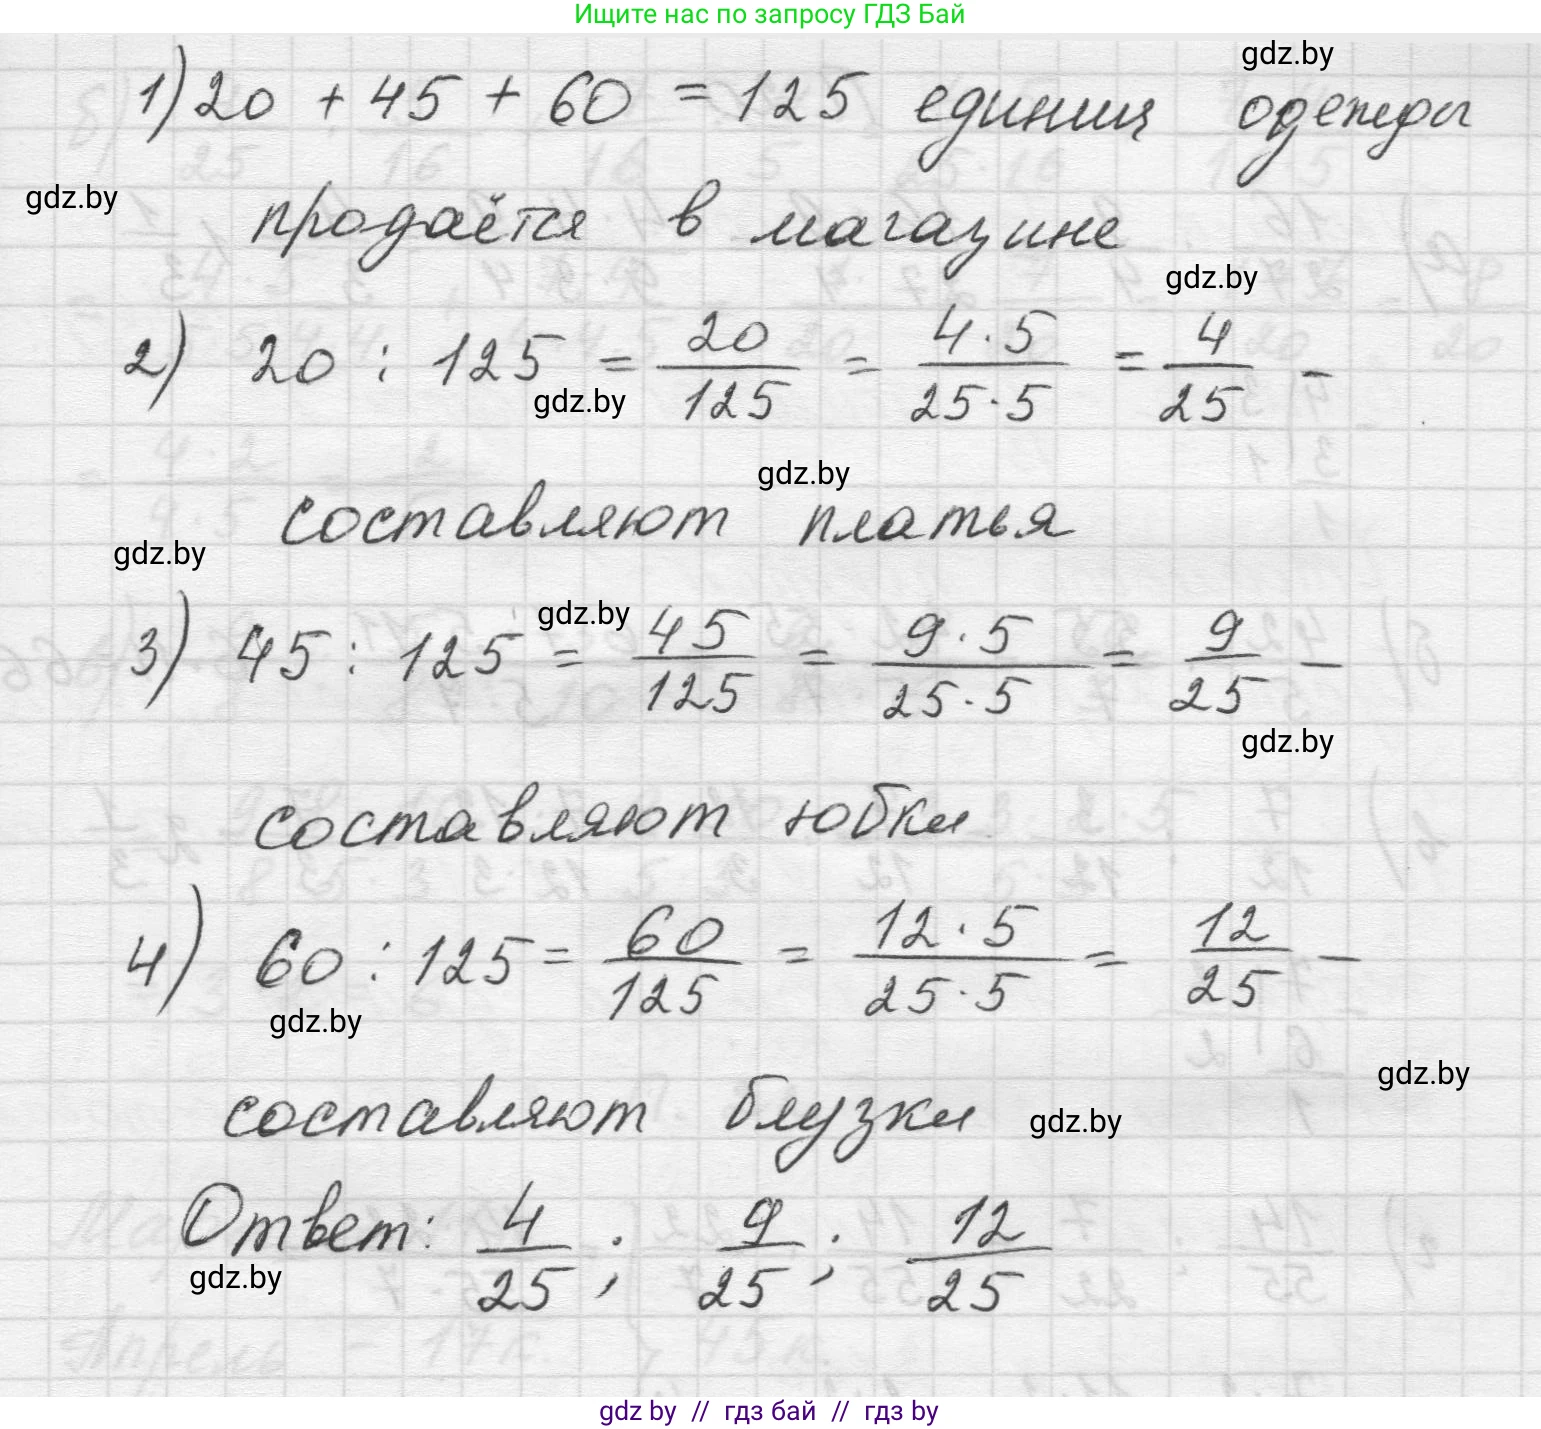 Ищите нас по запросу ГДЗ Бай
gdz.by
1) 20 + 45 + 60 = 125 единиц одежды
gdz.by
продаётся в магазине
gdz.by
2) 20 : 125 = 20/125 = 4·5/25·5 = 4/25 -
gdz.by
gdz.by
составляют платья
gdz.by
gdz.by
3) 45 : 125 = 45/125 = 9·5/25·5 = 9/25 -
gdz.by
составляют юбки
4) 60 : 125 = 60/125 = 12·5/25·5 = 12/25 -
gdz.by
gdz.by
составляют блузки
gdz.by
Ответ: 4/25 ; 9/25 ; 12/25
gdz.by
gdz by // гдз бай // гдз by